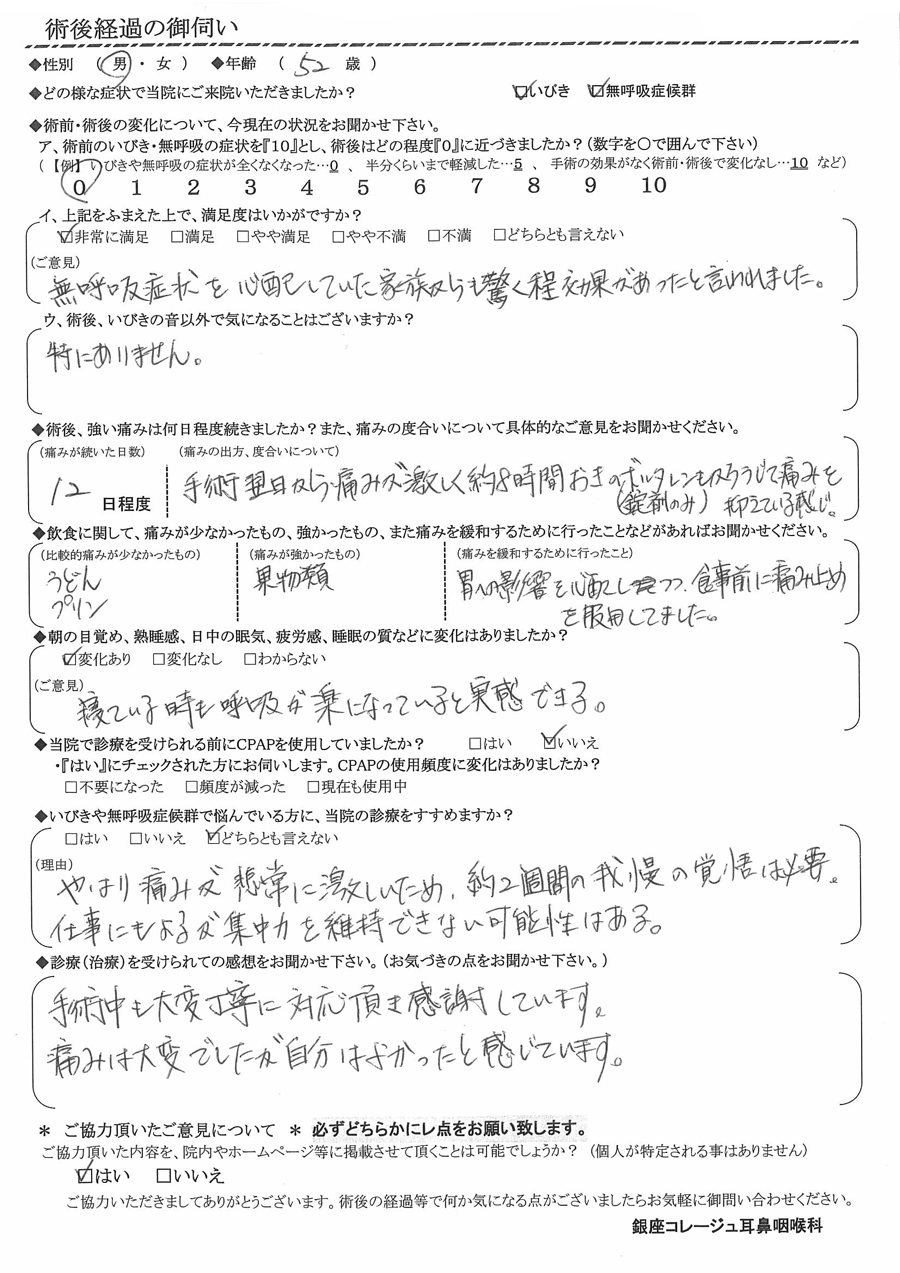 術後経過の御伺い
◆性別 (男・女) ◆年齢 (52歳)
◆どの様な症状で当院にご来院いただきましたか? ☑いびき ☑無呼吸症候群
◆術前・術後の変化について、今現在の状況をお聞かせ下さい。
ア、術前のいびき・無呼吸の症状を『10』とし、術後はどの程度『0』に近づきましたか?(数字を〇で囲んで下さい)
(【例】いびきや無呼吸の症状が全くなくなった…0 、 半分くらいまで軽減した…5 、 手術の効果がなく術前・術後で変化なし…10 など)
0 1 2 3 4 5 6 7 8 9 10
イ、上記をふまえた上で、満足度はいかがですか?
☑非常に満足 □満足 □やや満足 □やや不満 □不満 □どちらとも言えない
(ご意見)
無呼吸症状を心配していた家族からも驚く程効果があったと言われました。
ウ、術後、いびきの音以外で気になることはございますか?
特にありません。
◆術後、強い痛みは何日程度続きましたか?また、痛みの度合いについて具体的なご意見をお聞かせください。
(痛みが続いた日数) (痛みの出方、度合いについて)
12 日程度 手術翌日から痛みが激しく約8時間おきのボルタレンもかろうじて痛みを
(錠剤のみ) 抑えている感じ。
◆飲食に関して、痛みが少なかったもの、強かったもの、また痛みを緩和するために行ったことなどがあればお聞かせください。
(比較的痛みが少なかったもの) (痛みが強かったもの) (痛みを緩和するために行ったこと)
うどん 果物類 胃への影響を心配しつつ、食事前に痛み止め
プリン を服用してました。
◆朝の目覚め、熟睡感、日中の眠気、疲労感、睡眠の質などに変化はありましたか?
☑変化あり □変化なし □わからない
(ご意見)
寝ている時も呼吸が楽になっていると実感できる。
◆当院で診療を受けられる前にCPAPを使用していましたか? □はい ☑いいえ
・『はい』にチェックされた方にお伺いします。CPAPの使用頻度に変化はありましたか?
□不要になった □頻度が減った □現在も使用中
◆いびきや無呼吸症候群で悩んでいる方に、当院の診療をすすめますか?
□はい □いいえ ☑どちらとも言えない
(理由)
やはり痛みが想常に激しいため、約2週間の我慢の覚悟は必要。
仕事にもよるが集中力を維持できない可能性はある。
◆診療(治療)を受けられての感想をお聞かせ下さい。(お気づきの点をお聞かせ下さい。)
手術中も大変丁寧に対応頂き感謝しています。
痛みは大変でしたが自分はよかったと感じています。
* ご協力頂いたご意見について * 必ずどちらかにレ点をお願い致します。
ご協力頂いた内容を、院内やホームページ等に掲載させて頂くことは可能でしょうか? (個人が特定される事はありません)
☑はい □いいえ
ご協力いただきましてありがとうございます。術後の経過等で何か気になる点がございましたらお気軽に御問い合わせください。
銀座コレージュ耳鼻咽喉科